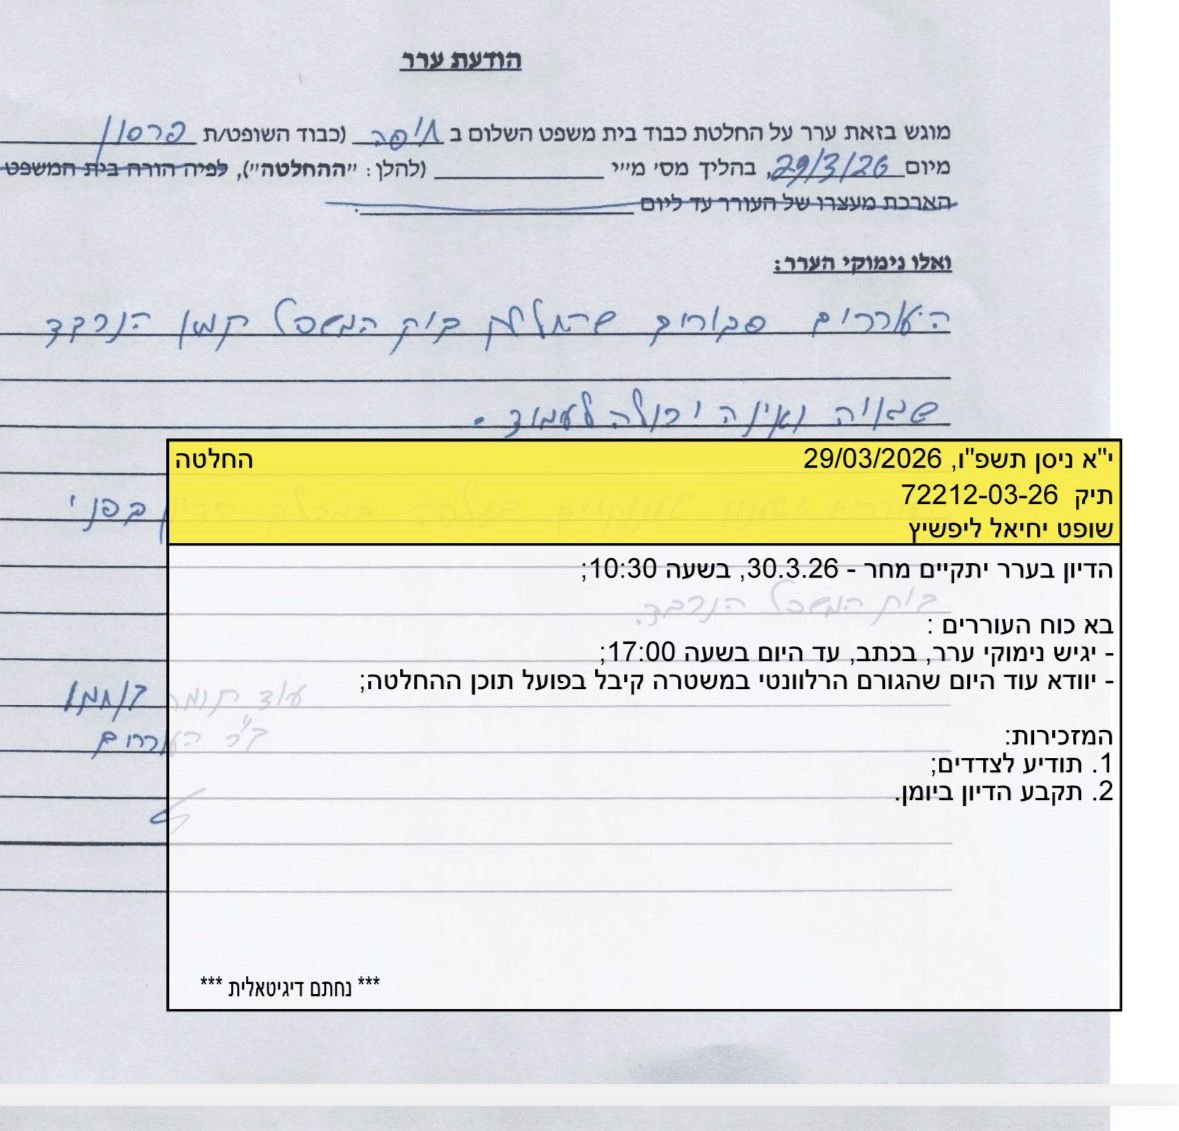 הודעת ערר
מוגש בזאת ערר על החלטת כבוד בית משפט השלום ב חיפה (כבוד השופט/ת פרסון
מיום 29/3/26, בהליך מס' מ"י (להלן: "ההחלטה"), לפיה הורה בית המשפט
הארכת מעצרו של העורר עד ליום
ואלו נימוקי הערר:
העוררים סבורים שהחלטת בית המשפט קמא הנכבד
שגויה ואינה יכולה לעמוד.
בפני
בית המשפט הנכבד.
עוד
ב"כ העוררים
החלטה
י"א ניסן תשפ"ו, 29/03/2026
תיק 72212-03-26
שופט יחיאל ליפשיץ
הדיון בערר יתקיים מחר - 30.3.26, בשעה 10:30;
בא כוח העוררים :
- יגיש נימוקי ערר, בכתב, עד היום בשעה 17:00;
- יוודא עוד היום שהגורם הרלוונטי במשטרה קיבל בפועל תוכן ההחלטה;
המזכירות:
1. תודיע לצדדים;
2. תקבע הדיון ביומן.
*** נחתם דיגיטאלית ***